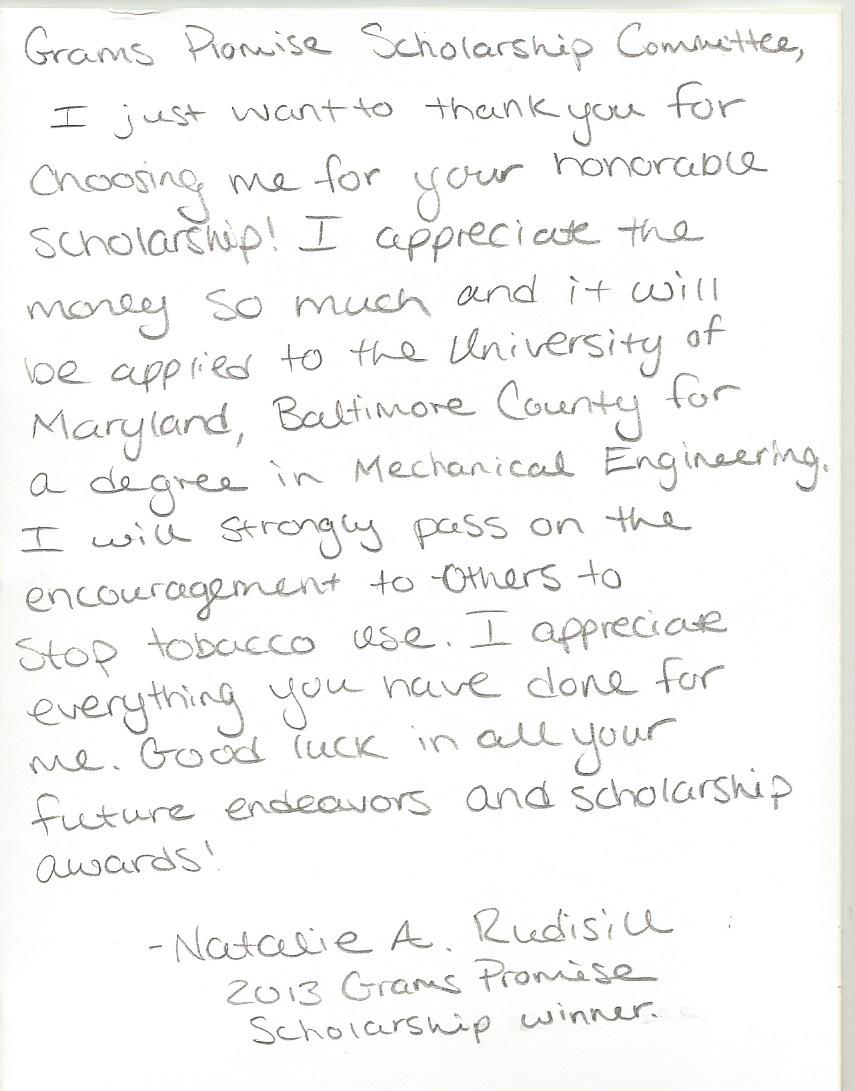 Grams Promise Scholarship Committee,
I just want to thank you for
choosing me for your honorable
scholarship! I appreciate the
money so much and it will
be applied to the University of
Maryland, Baltimore County for
a degree in Mechanical Engineering.
I will strongly pass on the
encouragement to others to
stop tobacco use. I appreciate
everything you have done for
me. Good luck in all your
future endeavors and scholarship
awards!
-Natalie A. Rudisill
2013 Grams Promise
Scholarship winner.